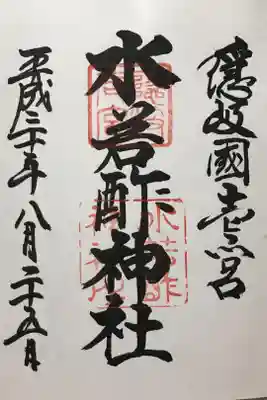 隱岐國壱之宮
水若酢神社
平成三十年八月二十五日